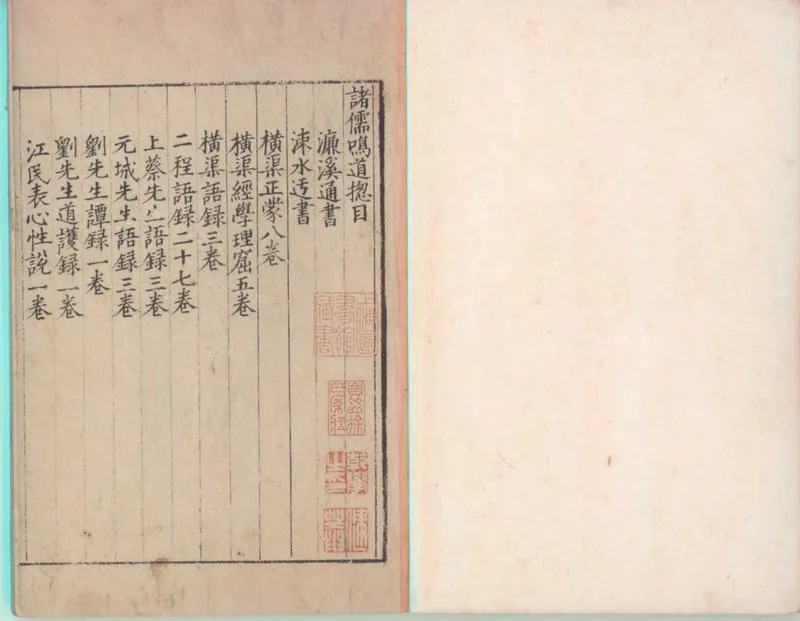 諸儒鳴道揔目
濂溪通書
涑水迃書
橫渠正蒙八卷
橫渠經學理窟五卷
橫渠語録三卷
二程語録二十七卷
上蔡先生語録三卷
元城先生語録三卷
劉先生譚録一卷
劉先生道護録一卷
江民表心性說一卷
上海圖書館藏書